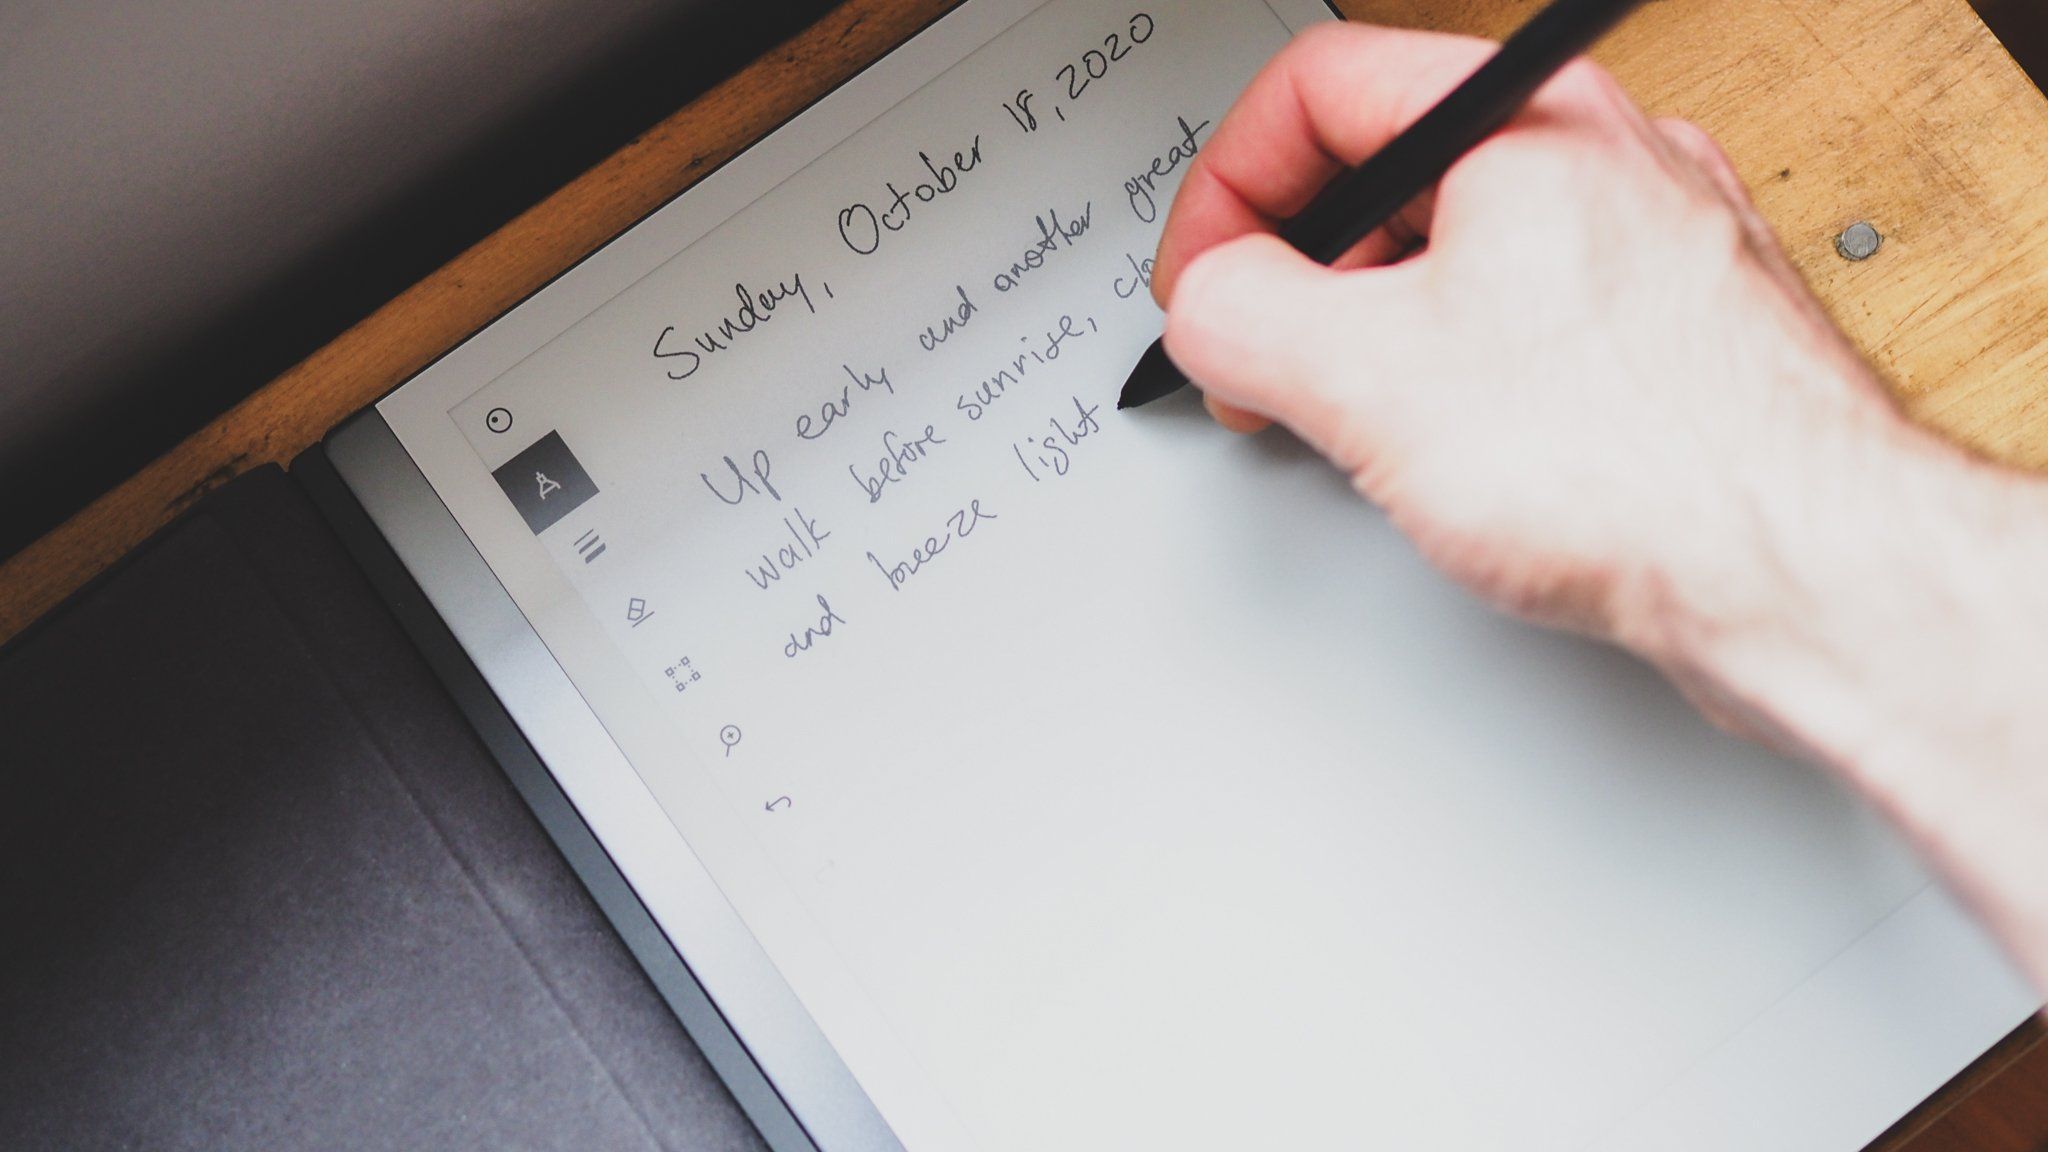 Sunday, October 18, 2020
Up early and another great
walk before sunrise,
and breeze light